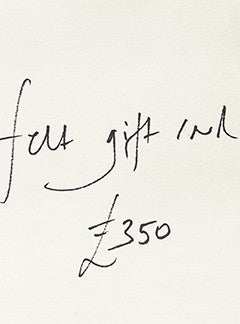 felt gift ink
£350